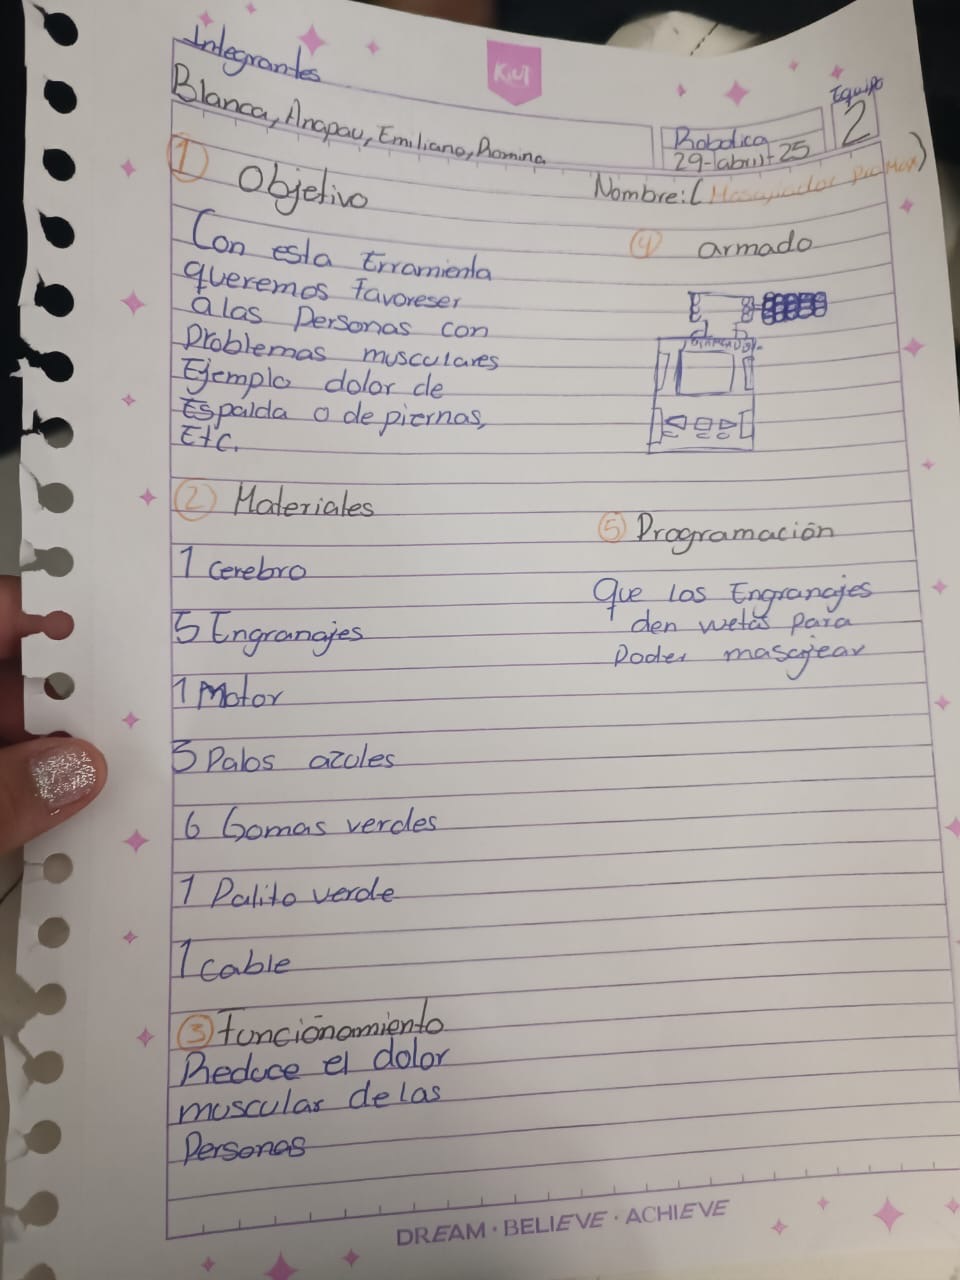 Integrantes
Blanca, Anapau, Emiliano, Romina
KiUT
Robotica
29-abril-25
Equipo
2
Nombre: (Masajiador Pro Max)
① Objetivo
Con esta Erramienta
queremos favoreser
a las Personas con
Problemas musculares
Ejemplo dolor de
Espalda o de piernas,
Etc.
② Materiales
1 cerebro
5 Engranajes
1 Motor
3 Palos azules
6 Gomas verdes
1 Palito verde
1 cable
③ Funcionamiento
Reduce el dolor
muscular de las
Personas
④ armado
⑤ Programación
Que los Engranajes
den weltas para
Poder masajear
DREAM · BELIEVE · ACHIEVE